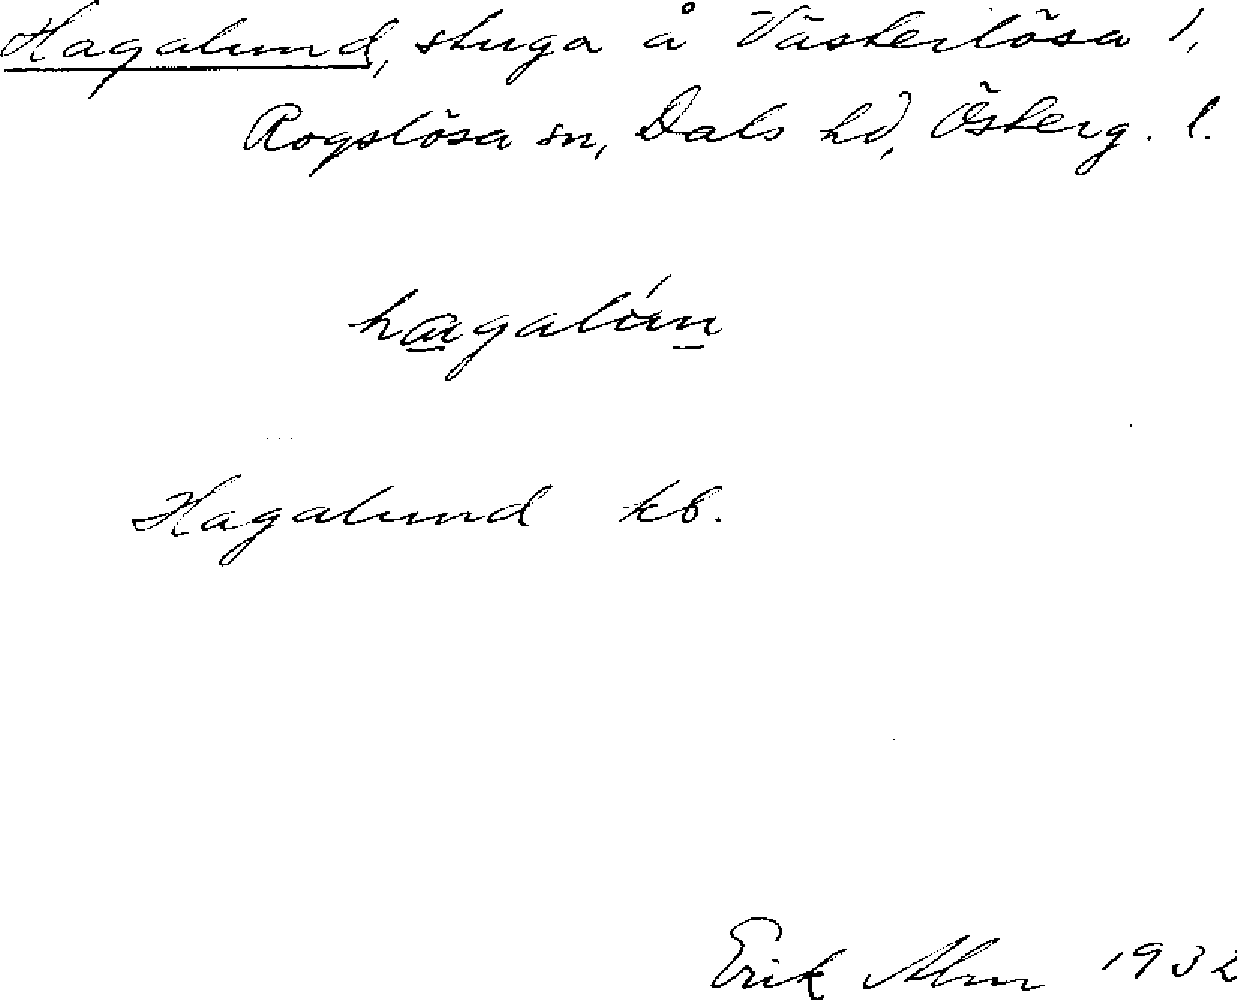 Hagalund, stuga å Västerlösa 1,
Rogslösa sn, Dals hd, Österg. l.
hagalún
Hagalund kb.
Erik Alm 1932